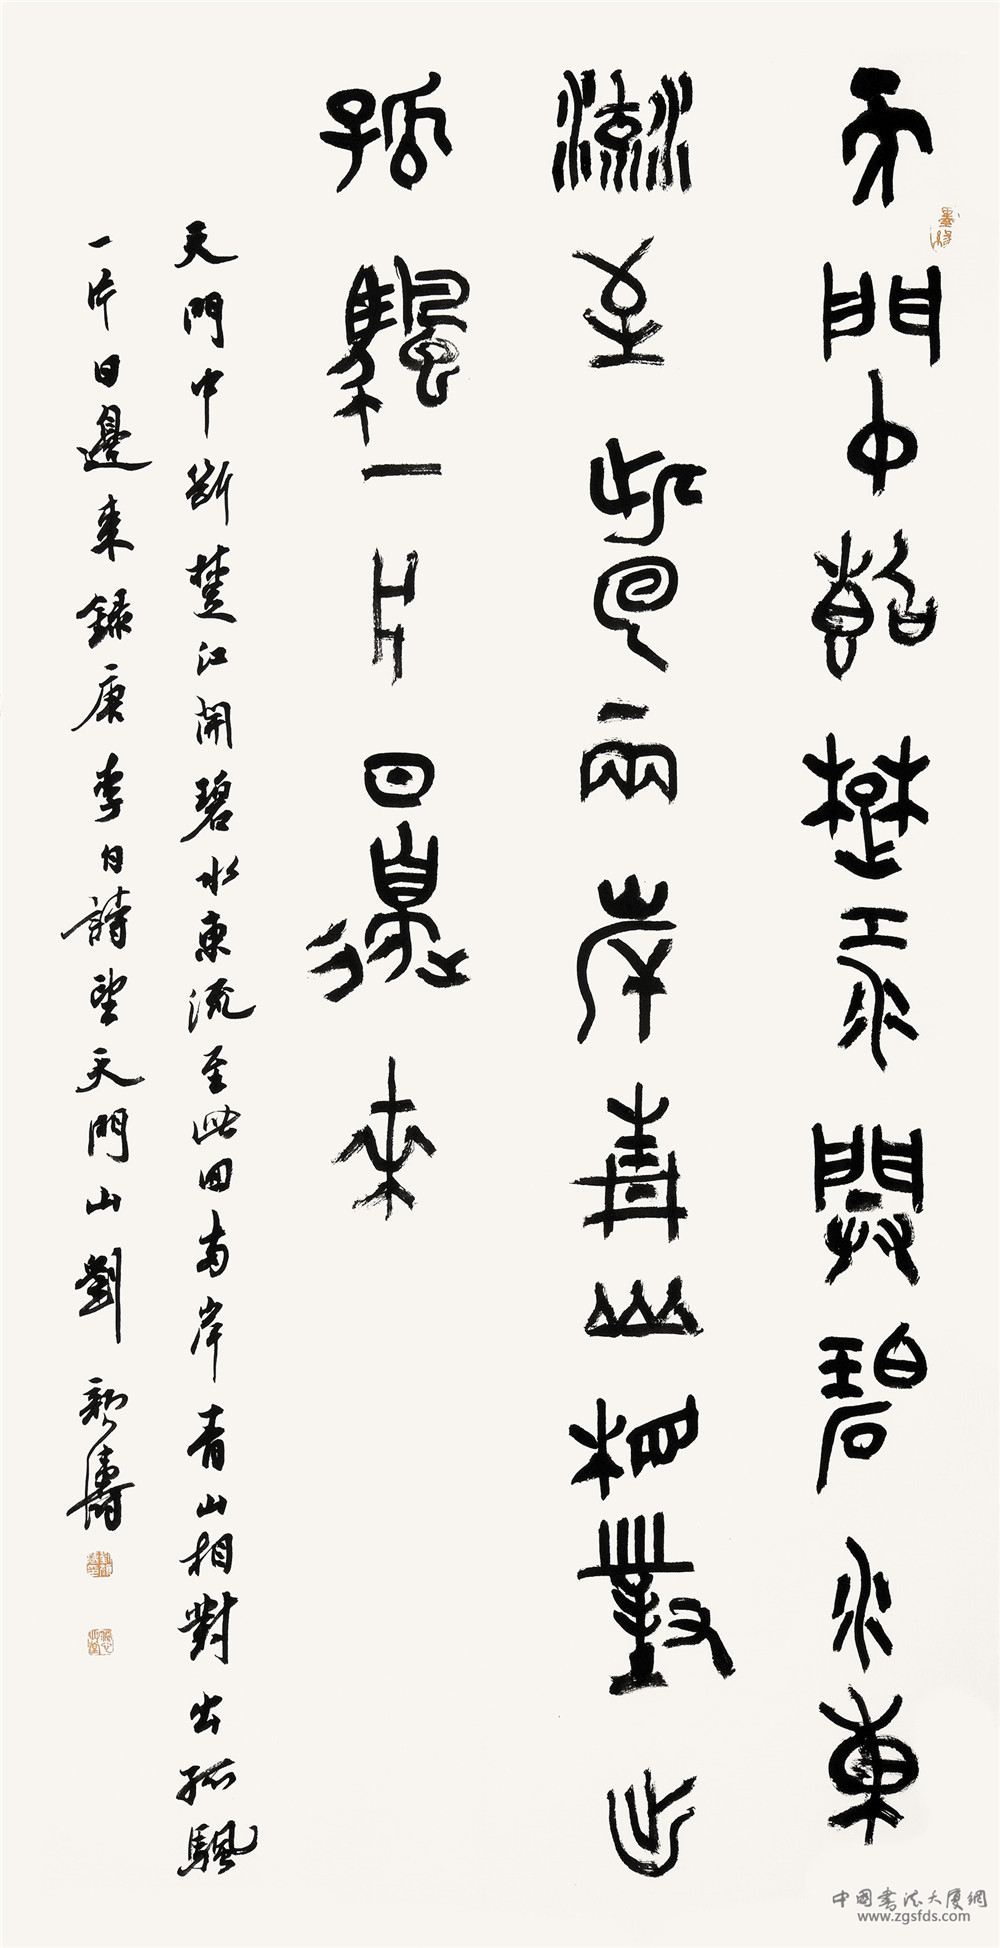 天門中斷楚江開碧水東
流至此回兩岸青山相對出
孤颿一片日邊來
天門中斷楚江開碧水東流至此回兩岸青山相對出孤颿
一片日邊來錄唐李白詩望天門山劉新濤
中国書法大厦網
www.zgsfds.com